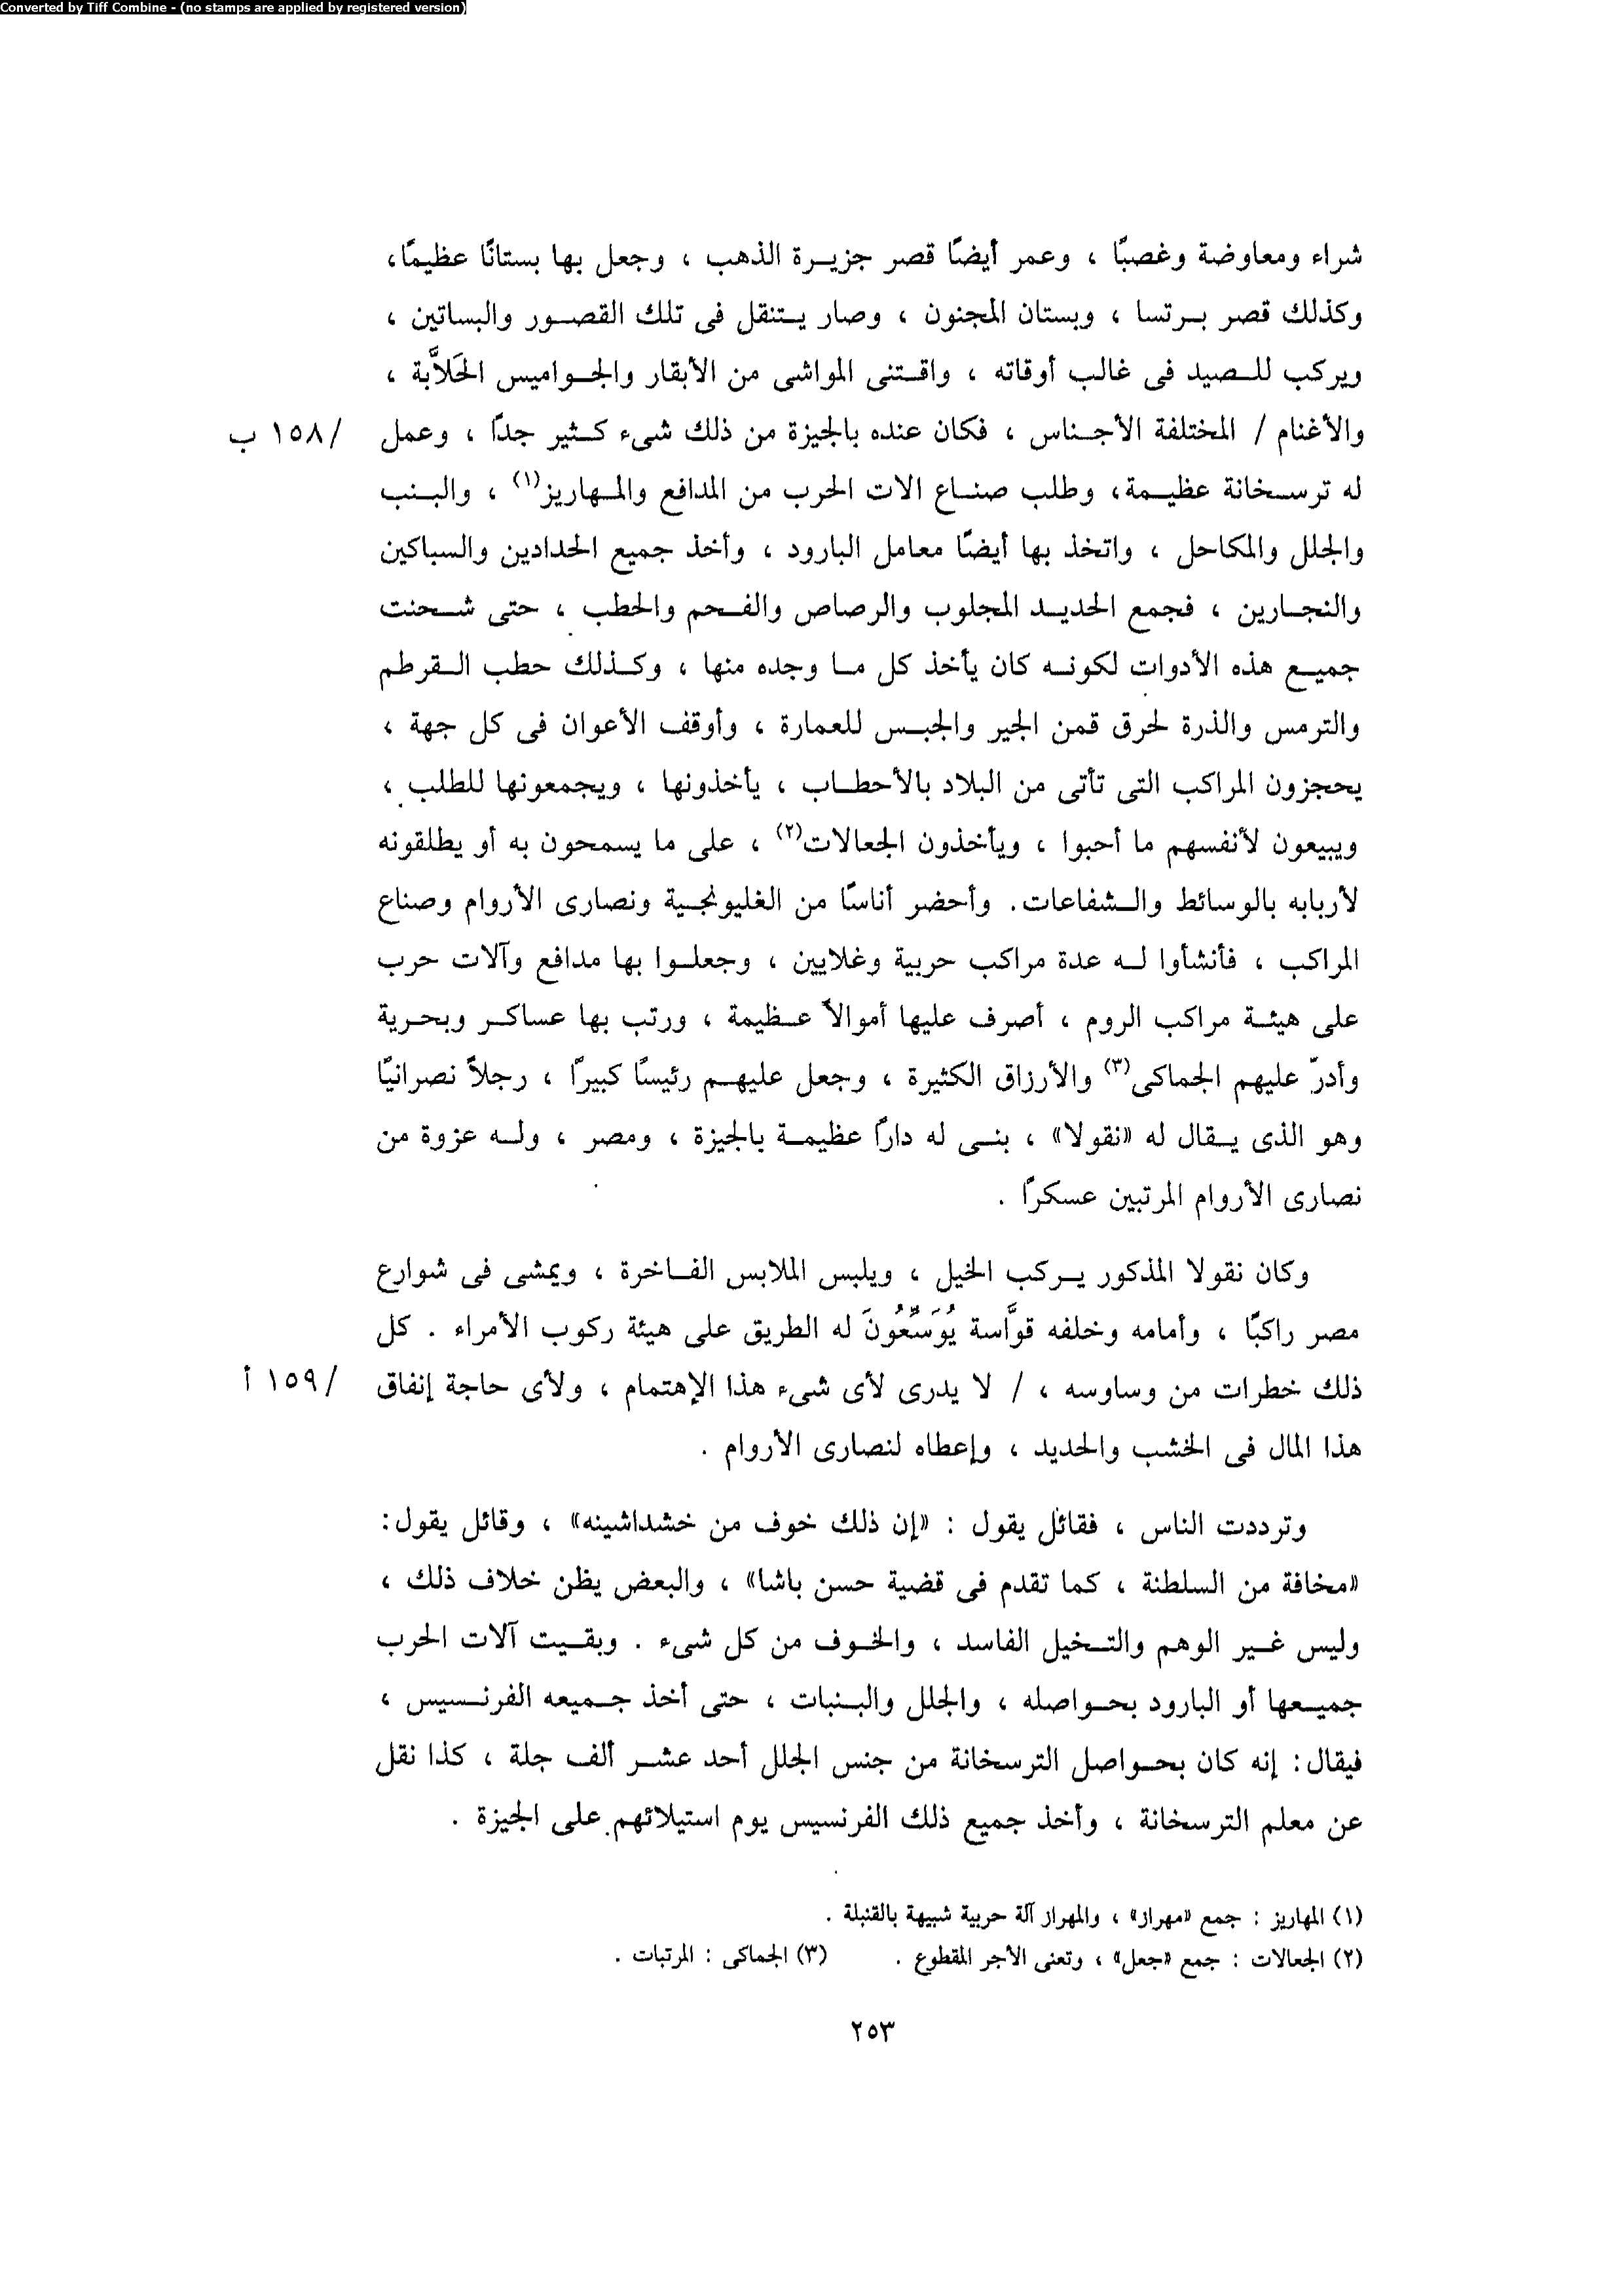 Converted by Tiff Combine - (no stamps are applied by registered version)
شراء ومعاوضة وغصبًا ، وعمر أيضًا قصر جزيرة الذهب ، وجعل بها بستانًا عظيمًا،
وكذلك قصر برتسا ، وبستان المجنون ، وصار يتنقل فى تلك القصور والبساتين ،
ويركب للصيد فى غالب أوقاته ، واقتنى المواشى من الأبقار والجواميس الحَلاَّبة ،
والأغنام / المختلفة الأجناس ، فكان عنده بالجيزة من ذلك شىء كثير جدًا ، وعمل /١٥٨ ب
له ترسخانة عظيمة، وطلب صناع الات الحرب من المدافع والمهاريز(١) ، والبنب
والجلل والمكاحل ، واتخذ بها أيضًا معامل البارود ، وأخذ جميع الحدادين والسباكين
والنجارين ، فجمع الحديد المجلوب والرصاص والفحم والحطب ، حتى شحنت
جميع هذه الأدوات لكونه كان يأخذ كل ما وجده منها ، وكذلك حطب القرطم
والترمس والذرة لحرق قمن الجير والجبس للعمارة ، وأوقف الأعوان فى كل جهة ،
يحجزون المراكب التى تأتى من البلاد بالأحطاب ، يأخذونها ، ويجمعونها للطلب ،
ويبيعون لأنفسهم ما أحبوا ، ويأخذون الجعالات(٢) ، على ما يسمحون به أو يطلقونه
لأربابه بالوسائط والشفاعات. وأحضر أناسًا من الغليونجية ونصارى الأروام وصناع
المراكب ، فأنشأوا له عدة مراكب حربية وغلايين ، وجعلوا بها مدافع وآلات حرب
على هيئة مراكب الروم ، أصرف عليها أموالاً عظيمة ، ورتب بها عساكر وبحرية
وأدرّ عليهم الجماكى(٣) والأرزاق الكثيرة ، وجعل عليهم رئيسًا كبيرًا ، رجلاً نصرانيًا
وهو الذى يقال له «نقولا» ، بنى له دارًا عظيمة بالجيزة ، ومصر ، وله عزوة من
نصارى الأروام المرتبين عسكرًا .
وكان نقولا المذكور يركب الخيل ، ويلبس الملابس الفاخرة ، ويمشى فى شوارع
مصر راكبًا ، وأمامه وخلفه قوَّاسة يُوَسِّعُونَ له الطريق على هيئة ركوب الأمراء . كل
ذلك خطرات من وساوسه ، / لا يدرى لأى شىء هذا الإهتمام ، ولأى حاجة إنفاق /١٥٩ أ
هذا المال فى الخشب والحديد ، وإعطاه لنصارى الأروام .
وترددت الناس ، فقائل يقول : «إن ذلك خوف من خشداشينه» ، وقائل يقول:
«مخافة من السلطنة ، كما تقدم فى قضية حسن باشا» ، والبعض يظن خلاف ذلك ،
وليس غير الوهم والتخيل الفاسد ، والخوف من كل شىء . وبقيت آلات الحرب
جميعها أو البارود بحواصله ، والجلل والبنبات ، حتى أخذ جميعه الفرنسيس ،
فيقال: إنه كان بحواصل الترسخانة من جنس الجلل أحد عشر ألف جلة ، كذا نقل
عن معلم الترسخانة ، وأخذ جميع ذلك الفرنسيس يوم استيلائهم على الجيزة .
(١) المهاريز : جمع «مهراز» ، والمهراز آلة حربية شبيهة بالقنبلة .
(٢) الجعالات : جمع «جعل» ، وتعنى الأجر المقطوع . (٣) الجماكى : المرتبات .
٢٥٣